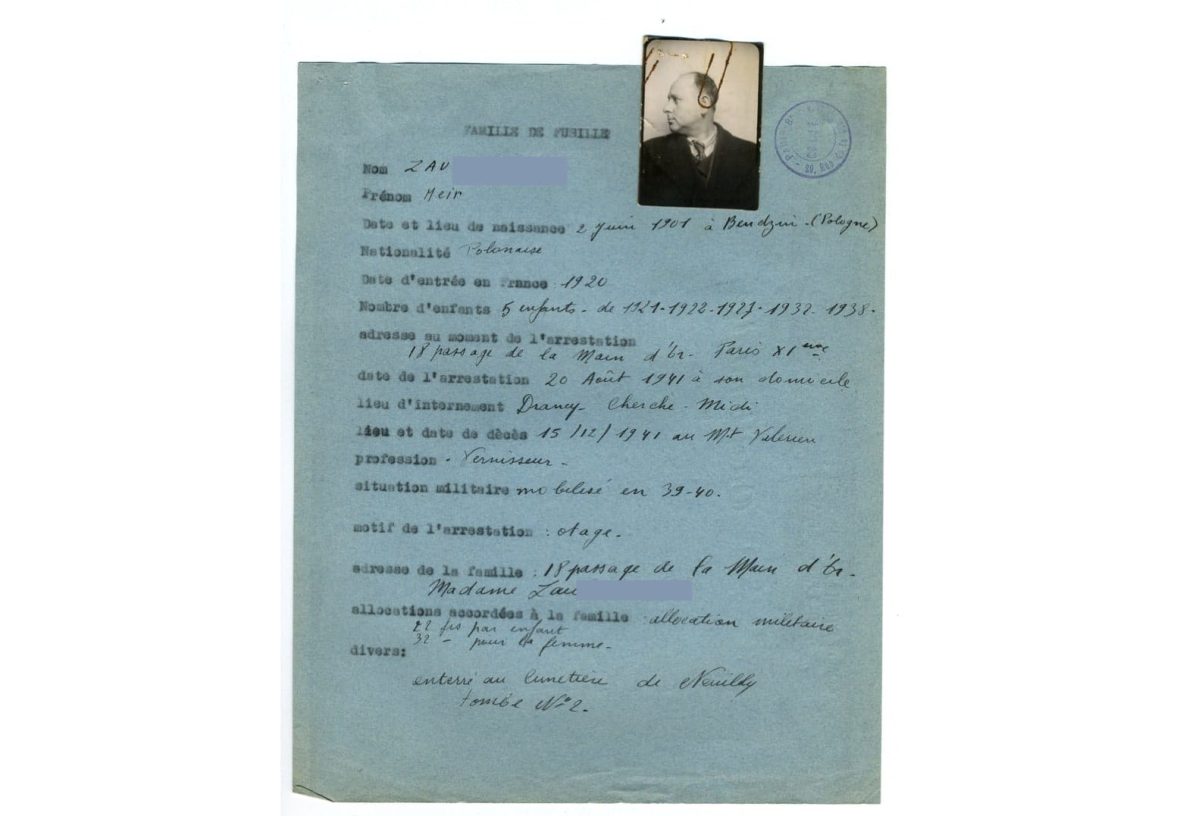 FAMILLE DE FUSILLE
Nom ZAU
Prénom Meir
Date et lieu de naissance 2 Juin 1901 à Bendzin - (Pologne)
Nationalité Polonaise
Date d'entrée en France 1920
Nombre d'enfants 5 enfants - de 1921-1922-1927-1932-1938-
adresse au moment de l'arrestation
18 passage de la Main d'Or - Paris XIeme
date de l'arrestation 20 Août 1941 à son domicile
lieu d'internement Drancy - Cherche-Midi
lieu et date de décès 15/12/1941 au Mt Valerien
profession - Vernisseur -
situation militaire mobilisé en 39-40.
motif de l'arrestation : otage -
adresse de la famille : 18 passage de la Main d'Or -
Madame Zau
allocations accordées à la famille : allocation militaire
22 frs par enfant
32 - pour la femme -
divers:
enterré au Cimetière de Neuilly
tombe N° 2 -